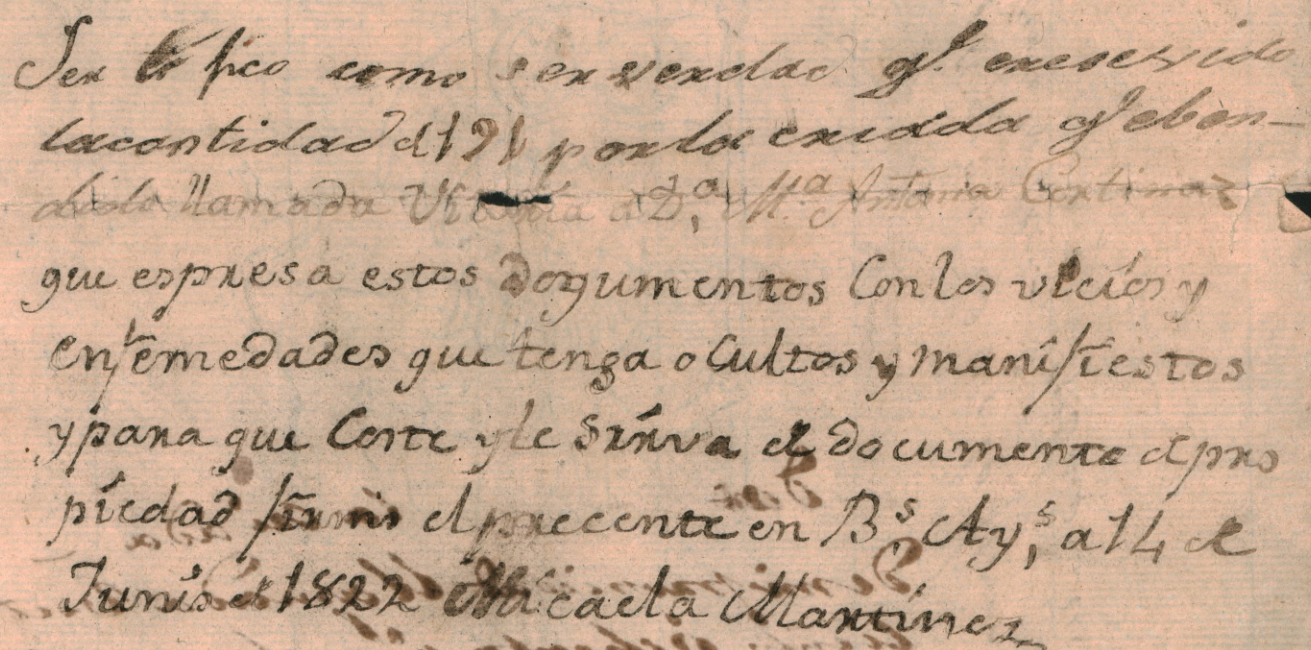 Sertifico como ser verdad qe. erresevido
lacantidad d 191 por la criada qe eben-
dido llamada Vicenta a D.a M.a Antonia Cortinas
que espresa estos dogumentos Con los vicios y
enfermedades que tenga ocultos y manifiestos
y para que Coste y le sirva de documente d pro
piedad firmo el precente en B.s Ay.s a 14 de
Junio d 1822 Micaela Martinez